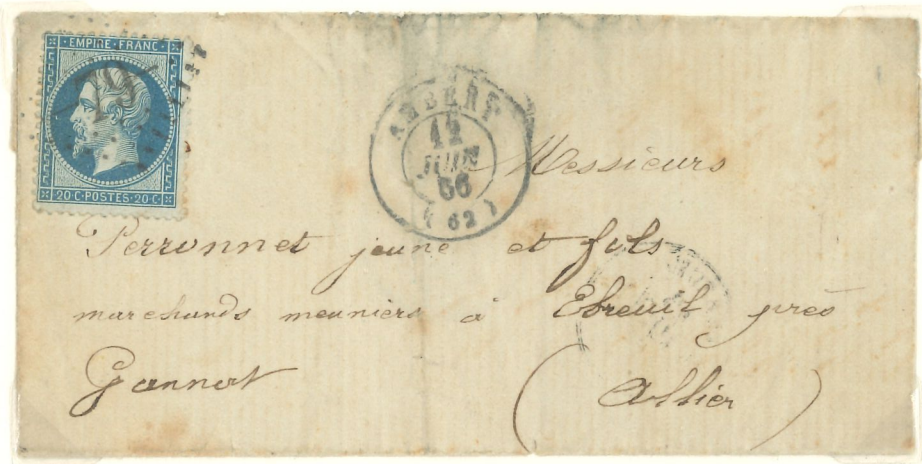 EMPIRE·FRANC·
79
20·C·POSTES·20·C·
AMBERT
12
JUIN
66
( 62 )
Messieurs
Perronnet jeune et fils
marchands meuniers à Ebreuil près
Gannat
( Allier )